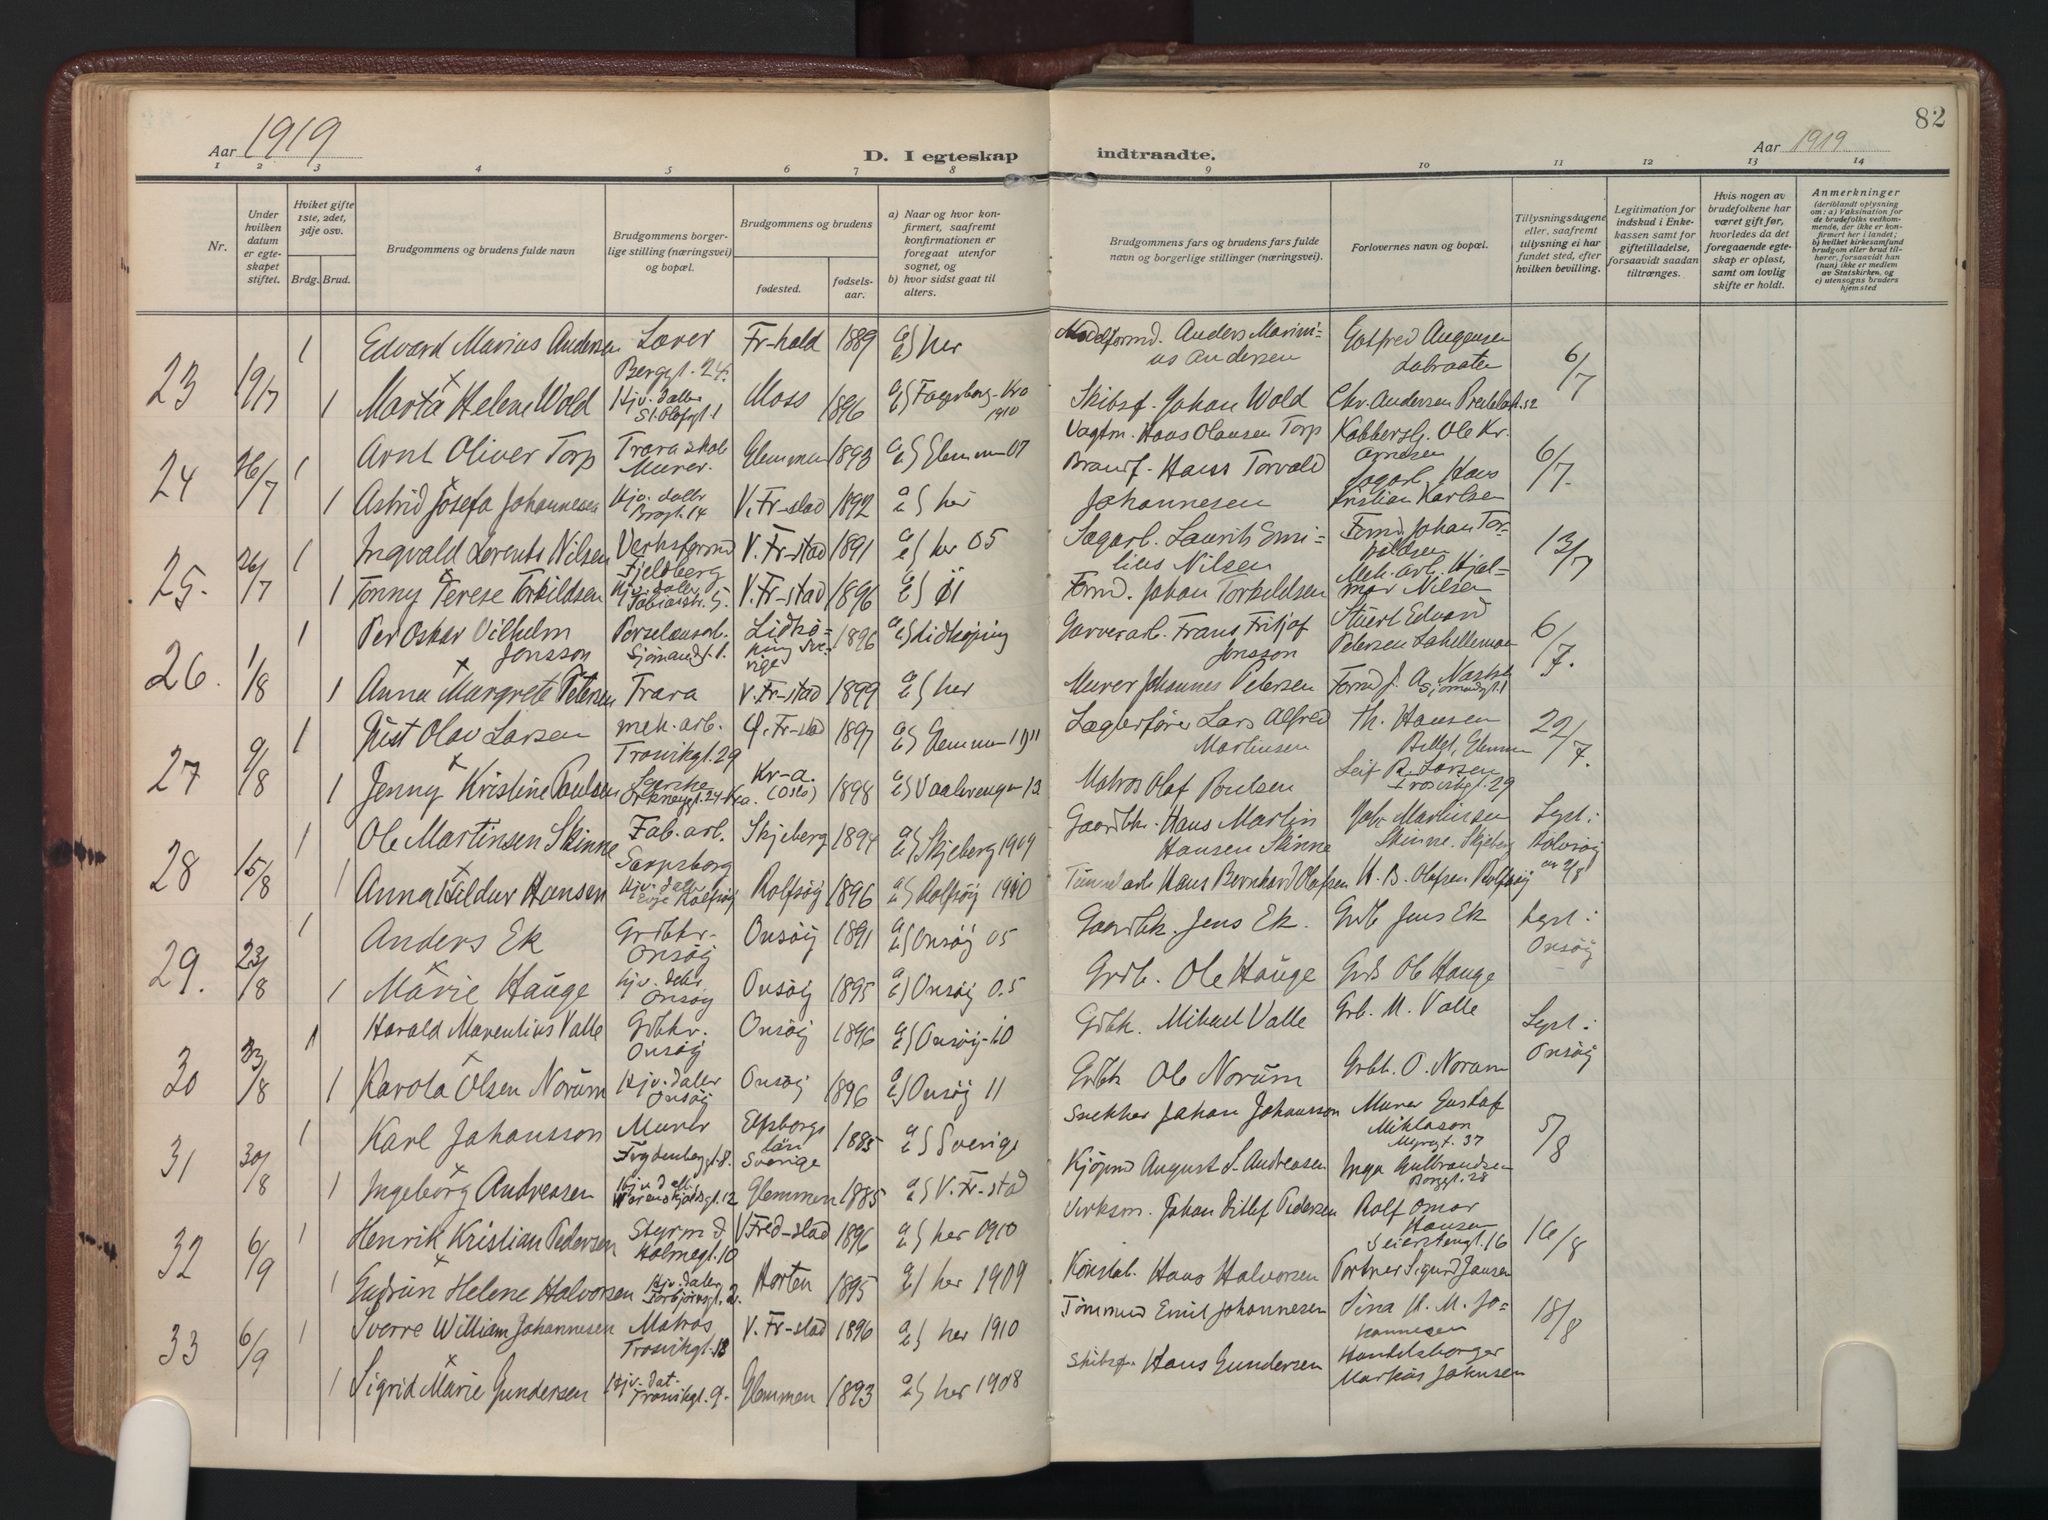 82
Aar 1919
D. I egteskap indtraadte.
Aar 1919
1 2 3 4 5 6 7 8 9 10 11 12 13 14
Nr.
Under hvilken datum er egteskapet stiftet.
Hviket gifte 1ste, 2det, 3dje osv.
Brdg. Brud.
Brudgommens og brudens fulde navn
Brudgommens borgerlige stilling (næringsvei) og bopæl.
Brudgommens og brudens
fødested.
fødselsaar.
a) Naar og hvor konfirmert, saafremt konfirmationen er foregaat utenfor sognet, og
b) hvor sidst gaat til alters.
Brudgommens fars og brudens fars fulde navn og borgerlige stillinger (næringsvei).
Forlovernes navn og bopæl.
Tillysningsdagene eller, saafremt tillysning ei har fundet sted, efter hvilken bevilling.
Legitimation for indskud i Enkekassen samt for giftetilladelse, forsaavidt saadan tiltrænges.
Hvis nogen av brudefolkene har været gift før, hvorledes da det foregaaende egteskap er opløst, samt om lovlig skifte er holdt.
Anmerkninger
(deriblandt oplysning om: a) Vaksination for de brudefolks vedkommende, der ikke er konfirmert her i landet; b) hvilket kirkesamfund brudgom eller brud tilhører, forsaavidt han (hun) ikke er medlem av Statskirken, og c) utensogns bruders hjemsted
23 19/7 1 Edvard Marius Andersen Laver Berggt. 24. Fr-hald 1889 a) her Anders Marinius Andersen Gotfred 6/7
1 Marta Helene Wold Hjv. datter St. Olafsgt. 1 Moss 1896 a) Fagerborg-Kra 1910 Skibsf. Johan Wold Chr. Andersen
24 26/7 1 Arnt Oliver Torp Trara skole Murer. Glemmen 1893 a) Glemmen 07 Vagtm. Hans Olausen Torp Ole Kr. Arnesen 6/7.
1 Astrid Josefa Johannesen Hjv. datter V. Fr-stad 1892 a) her Brandf. Hans Torvald Johannesen Hans Kristian Karlsen
25. 26/7 1 Ingvald Lorents Nilsen Verksformd Fjeldberg V. Fr-stad 1891 a) her 05 Sagarb. Laurits Emilius Nilsen Formd. Johan Torkildsen 13/7
1 Tonny Terese Torkildsen Hjv. dater V. Fr-stad 1896 a) 01 Formd. Johan Torkildsen Mek. arb. Hjalmar Nilsen
26. 1/8 1 Per Oskar Vilhelm Jonsson Porselænsarb. Sjømandsgt. 1. Lidkøping Sverige 1896 a) Lidkøping Garverarb. Frans Fritjof Jonsson Edvard Petersen 6/7.
1 Anna Margrete Petersen Trara V. Fr-stad 1899 a) her Murer Johannes Petersen Formd J. A. Sjømandsgt. 1
27 9/8 1 Just Olav Larsen mek. arb. Trosvikgt. 29 Ø. Fr-stad 1897 a) Glemmen 1911 Lars Alfred Martinsen Th. Hansen 22/7.
1 Jenny Kristine Paulsen Kr-a. (Oslo) 1898 a) Vaalerengen 13 Matros Olaf Poulsen Leif R. Larsen Trosvikgt. 29
28 15/8 1 Ole Martinsen Skinne Fab. arb. Sarpsborg Skjeberg 1894 a) Skjeberg 1909 Gaardbk. Hans Martin Hansen Skinne Joh. Martinsen Skinne. Skjeberg Lyst i Rolvsøy 2/8
1 Anna Hildur Hansen Hjv. dater Rolfsøy Rolfsøy 1896 a) Rolfsøy 1910 Hans Bernhard Olafsen H. B. Olafsen Rolfsøy
29. 23/8 1 Anders Ek Grdbkr. Onsøy Onsøy 1891 a) Onsøy 05 Gaardbk. Jens Ek. Grdb Jens Ek Lyst i Onsøy
1 Marie Hauge Hjv. dater Onsøy Onsøy 1895 a) Onsøy 0.5 Grdb. Ole Hauge Grdb Ole Hauge
30 23/8 1 Harald Marentius Valle Grdbkr. Onsøy Onsøy 1896 a) Onsøy 10 Grdbk. Mikael Valle Grb. M. Valle Lyst i Onsøy
1 Karola Olsen Norum Hjv. dater Onsøy Onsøy 1896 a) Onsøy 11 Grdbk Ole Norum Grbk. O. Norum
31 30/8 1 Karl Johansson Murer Elfsborgs län Sverige 1885 a) Sverige Snekker Johan Johansson Murer Gustaf Miklason Myrgt. 37 5/8
1 Ingeborg Andreasen Glemmen 1885 a) V. Fr-stad Kjøpmd August S. Andreasen Inga Gulbrandsen Borggt. 28
32 6/9 1 Henrik Kristian Pedersen Styrmd Holmegt. 10 V. Fred-stad 1896 a) her 1910 Johan Ditlef Pedersen Rolf Omar Hansen Seierstengt. 16 16/8
1 Gudrun Helene Halvorsen Hjv. dater Torbjørnsgt. 2. Horten 1895 a) her 1909 Konstab. Hans Halvorsen Portner Sigurd Jansen
33 6/9 1 Sverre William Johannesen Matros Trosvikgt. 18 V. Fr-stad 1896 a) her 1910 Tømmermd Emil Johannesen Sina H. M. Johannesen 18/8
1 Sigrid Marie Gundersen Hjv. dat. Trosvikgt. 9. Glemmen 1893 a) her 1908 Skibsf. Hans Gundersen Handelsborger Markus Johnsen